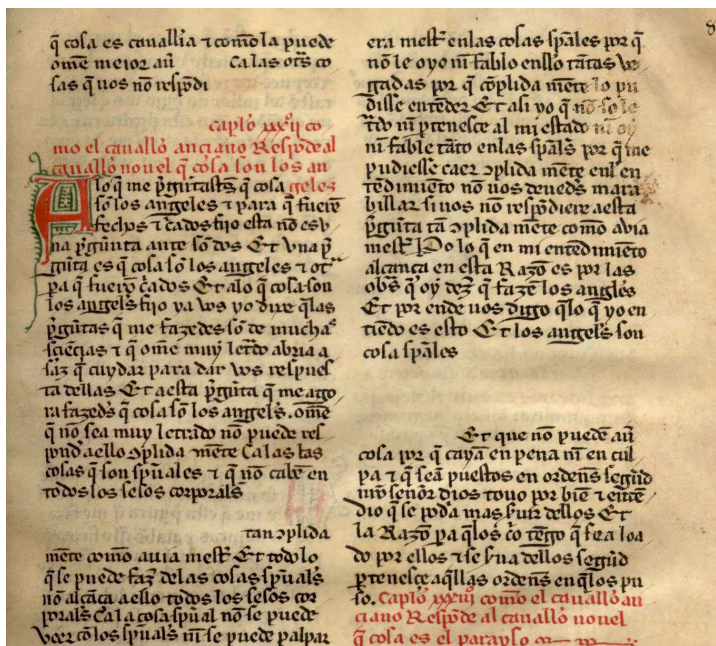 q̄ cosa es cauall'ia τ com̄o la puede
om̄e meior au͛ Ca las ot͛s co
sas q̄ uos nō respōdi
capl̄o xxxij co
mo el cauall̄o anciano Respōde al
cauall̄o nouel q̄ cosa son los an
A lo q̄ me p̄gūtastes q̄ cosa geles
sō los angeles τ para q̄ fuerō
fechos τ c̄ados fijo esta nō es v
na p̄gūnta ante sō dos Et vna p̄
gūta es q̄ cosa sō los angeles τ ot͛
pa q̄ fuerō c̄ados Et a lo q̄ cosa son
los angels fijo ya vos yo dixe q̄ las
p̄gūtas q̄ me fazedes sō de muchas
sciēcias τ q̄ om̄e muy let͛do abria a
saz q̄ cuydar para dar vos respues
ta dellas Et a esta p̄gūta q̄ me ago
ra fazed̄s q̄ cosa sō los angel̄s. om̄e
q̄ nō sea muy letrado nō puede res
pond͛ a ello ꝯplida mēte Ca las tas
cosas q̄ son sp̄uales τ q̄ nō cabē en
todos los sesos corporals
tan ꝯplida
mēte com̄o auia mest͛ Et todo lo
q̄ se puede faz͛ delas cosas sp̄uals
nō alcāça a ello todos los sesos cor
porals Ca la cosa sp̄ual nō se puede
veer cō los sp̄uals ni se puede palpar
era mest͛ en las cosas sp̄ales por q̄
nō le oyo ni fablo en llo tātas ve
gadas por q̄ cōplida mēte lo pu
disse entēder Et asi yo q̄ nō so le
t͛do ni p̄tenesce al mi estado ni oy
ni fable tāto en las sp̄als por q̄ me
pudiesse caer ꝯplida mēte enl en
tēdimiēto nō uos deued̄s mara
billar si uos nō respōdiere a esta
p̄gūta tā ꝯplida mēte com̄o auia
mest͛ Po lo q̄ en mi entēdimiēto
alcança en esta Razō es por las
ob͛s q̄ oy dez͛ q̄ fazē los angl̄es
Et por ende uos diggo q̄ lo q̄ yo en
tiēdo es esto Et los angel̄s son
cosa sp̄ales
Et que nō puedē au͛
cosa por q̄ cayā en pena ni en cul
pa τ q̄ seā puestos en ordens segūd
nr̄o señor dios touo por biē τ entē
dio q̄ se podia mas s͛uir dellos Et
la Razō pa q̄ los c͛o tēgo q̄ fue a loa
do por ellos τ se s͛ua dellos segūd
p̄tenesce a q̄llas ordens en q̄ los pu
so. capl̄o xxxiij com̄o el cauall̄o an
ciano Respōde al cauall̄o nouel
q̄ cosa es el parayso